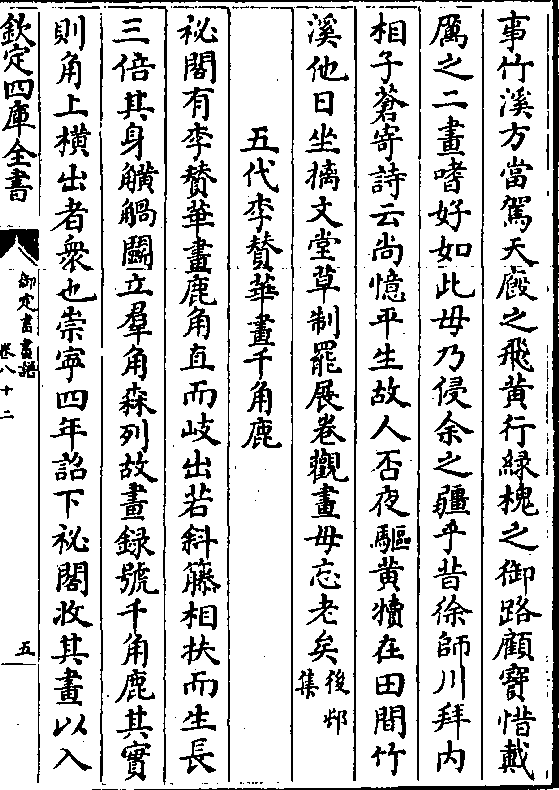 事竹溪方當駕天廄之飛黄行緑槐之御路顧寳惜戴
厲之二畫嗜好如此毋乃侵余之疆乎昔徐師川拜内
相子蒼寄詩云尚憶平生故人否夜驅黄犢在田間竹
溪他日坐摛文堂草制罷展卷觀畫毋忘老矣後邨集
五代李贊華畫千角鹿
祕閣有李贊華畫鹿角直而岐出若斜籐相扶而生長
三倍其身觵觸鬬立羣角森列故畫録號千角鹿其實
則角上横出者衆也崇寧四年詔下祕閣收其畫以入
欽定四庫全書
御定書畫譜
卷八十二
五